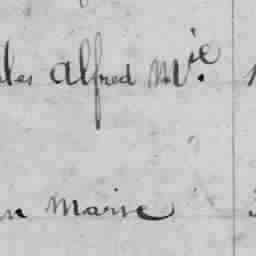 les Alfred Mie.
n Marie